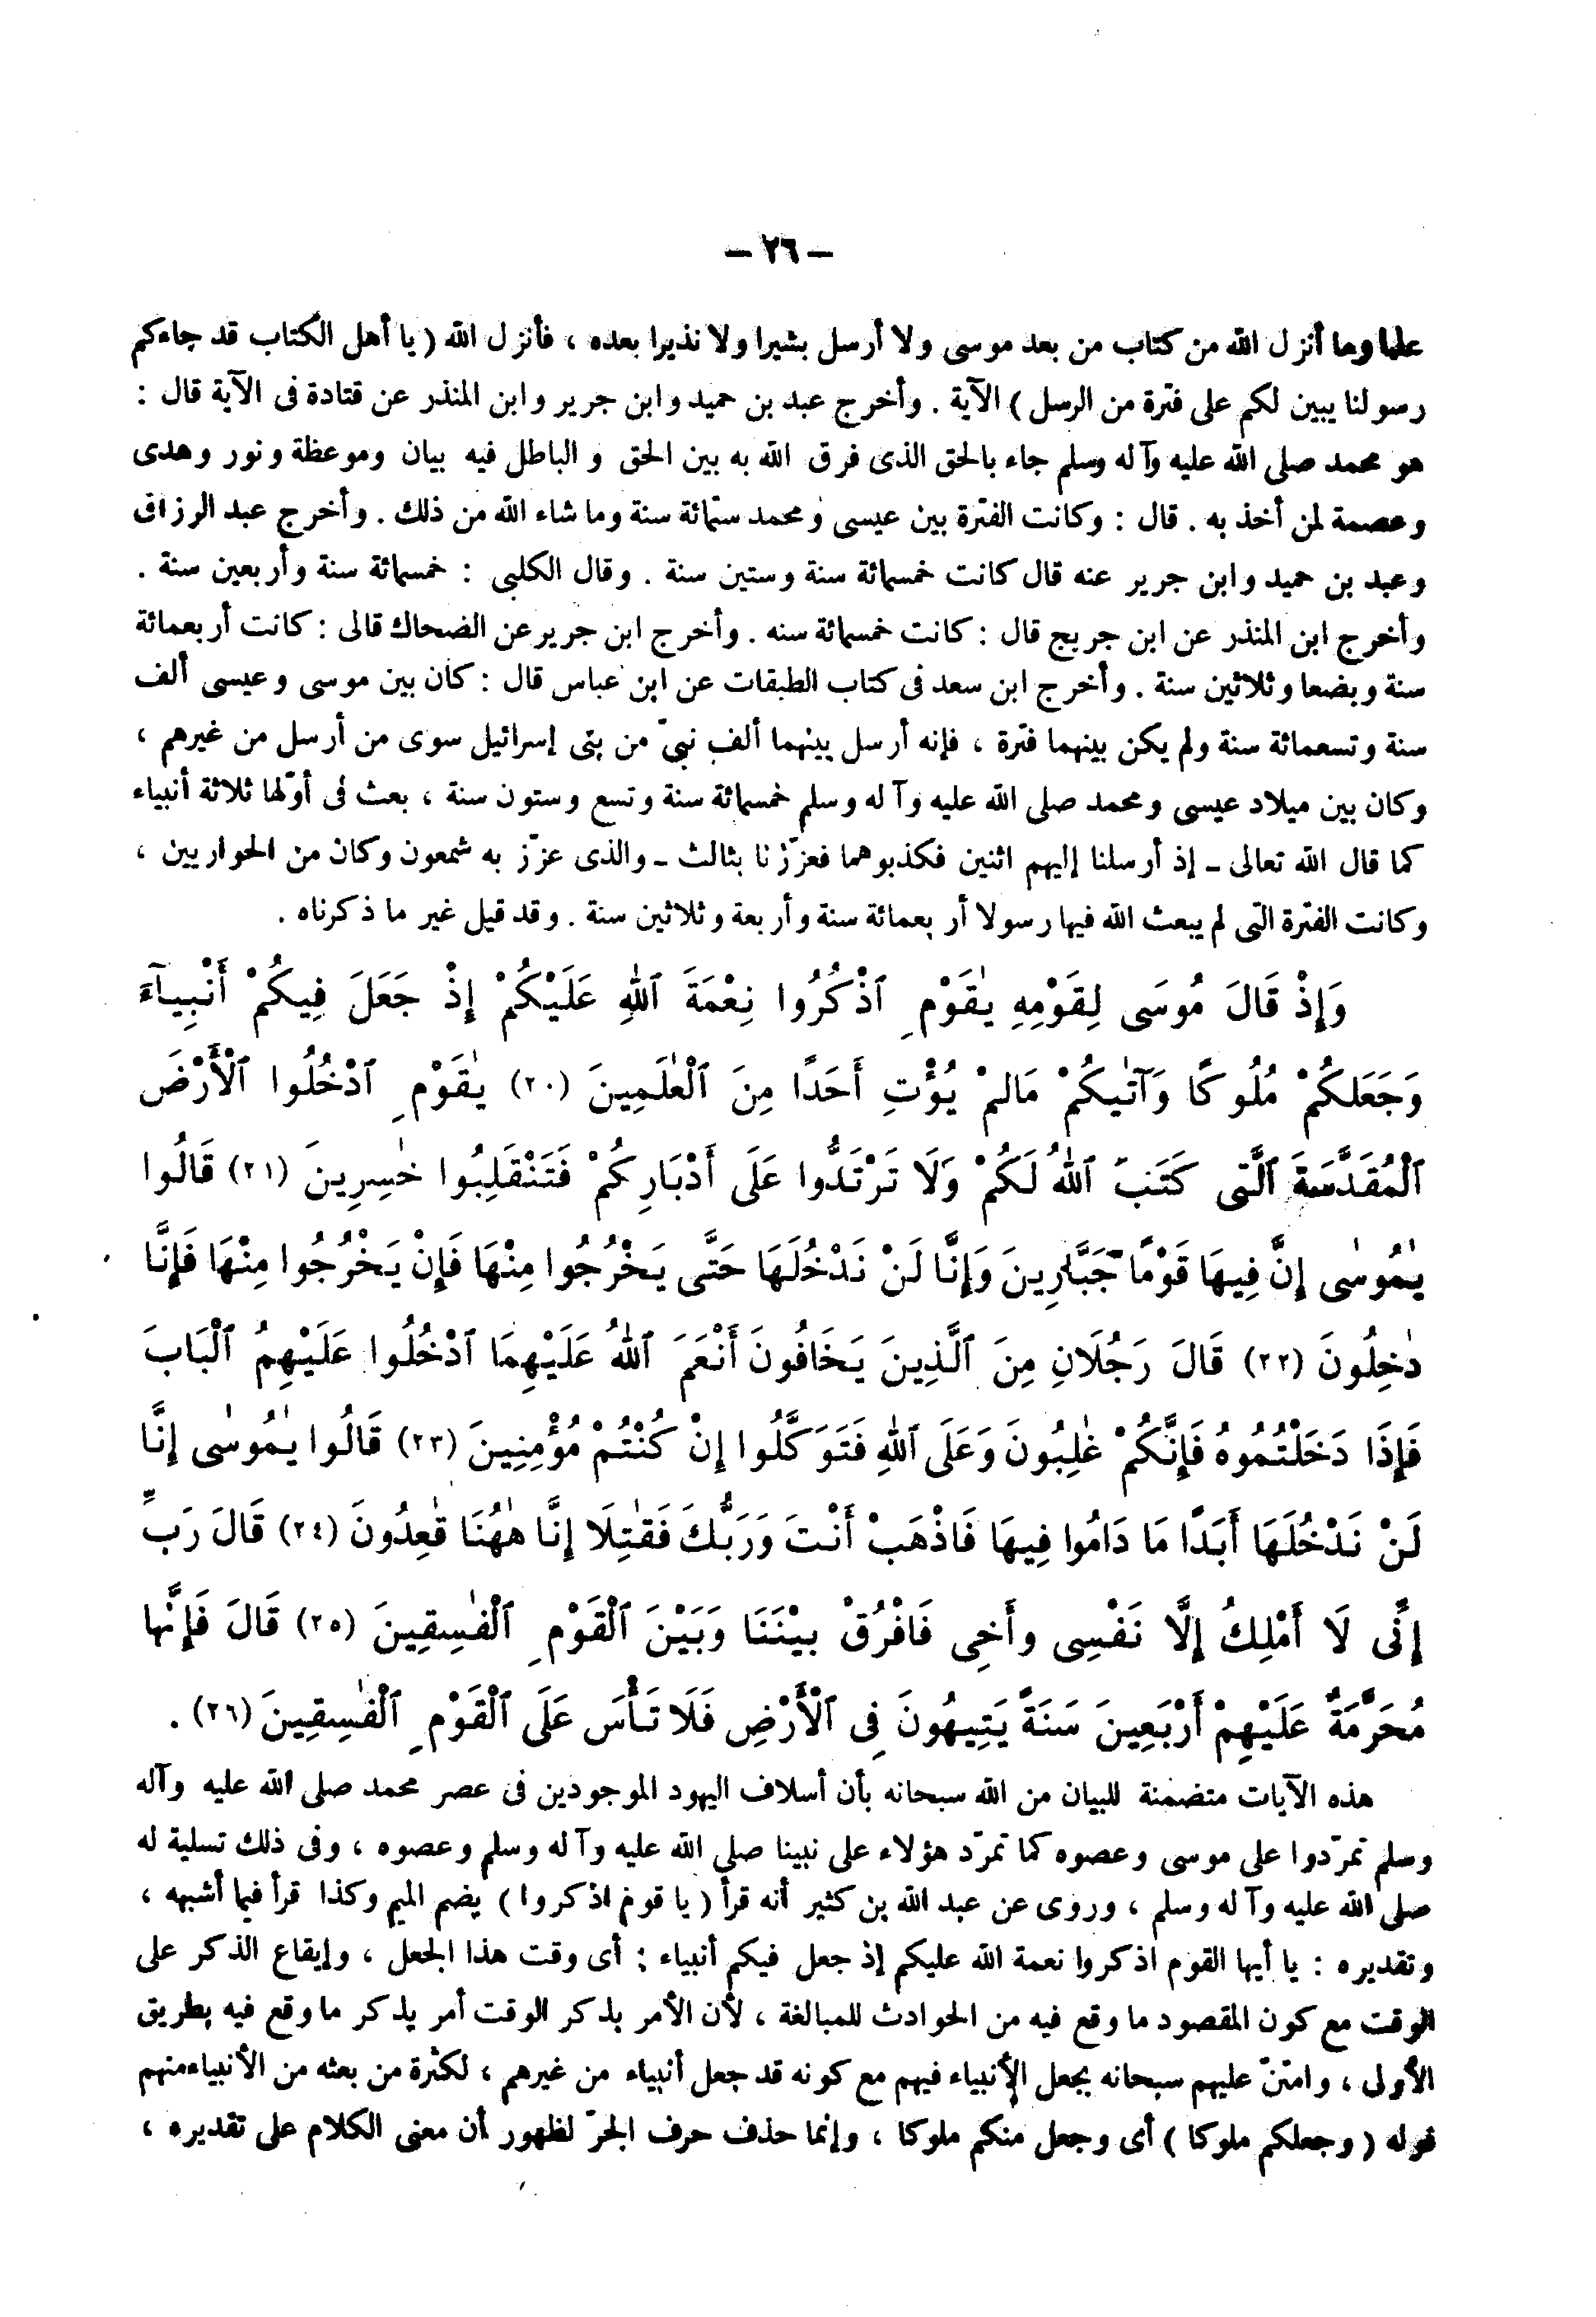 — ٢٦ —
علما وما أنزل الله من كتاب من بعد موسى ولا أرسل بشيرا ولا نذيرا بعده ، فأنزل الله ( يا أهل الكتاب قد جاءكم
رسولنا يبين لكم على فترة من الرسل ) الآية . وأخرج عبد بن حميد وابن جرير وابن المنذر عن قتادة فى الآية قال :
هو محمد صلى الله عليه وآله وسلم جاء بالحق الذى فرق الله به بين الحق و الباطل فيه بيان وموعظة ونور وهدى
وعصمة لمن أخذ به . قال : وكانت الفترة بين عيسى ومحمد ستمائة سنة وما شاء الله من ذلك . وأخرج عبد الرزاق
وعبد بن حميد وابن جرير عنه قال كانت خمسمائة سنة وستين سنة . وقال الكلبى : خمسمائة سنة وأربعين سنة .
وأخرج ابن المنذر عن ابن جريج قال : كانت خمسمائة سنه . وأخرج ابن جرير عن الضحاك قالى : كانت أربعمائة
سنة وبضعا وثلاثين سنة . وأخرج ابن سعد فى كتاب الطبقات عن ابن عباس قال : كان بين موسى وعيسى ألف
سنة وتسعمائة سنة ولم يكن بينهما فترة ، فإنه أرسل بينهما ألف نبىّ من بنى إسرائيل سوى من أرسل من غيرهم ،
وكان بين ميلاد عيسى ومحمد صلى الله عليه وآله وسلم خمسمائة سنة وتسع وستون سنة ، بعث فى أوّلها ثلاثة أنبياء
كما قال الله تعالى ـ إذ أرسلنا إليهم اثنين فكذبوهما فعزّزنا بثالث ـ والذى عزّز به شمعون وكان من الحواريين ،
وكانت الفترة التى لم يبعث الله فيها رسولا أربعمائة سنة وأربعة وثلاثين سنة . وقد قيل غير ما ذكرناه .
وَإِذْ قَالَ مُوسَى لِقَوْمِهِ يٰقَوْمِ ٱذْكُرُوا نِعْمَةَ ٱللهِ عَلَيْكُمْ إِذْ جَعَلَ فِيكُمْ أَنْبِيَآءَ
وَجَعَلَكُمْ مُلُوكًا وَآتٰيكُمْ مَالَمْ يُؤْتِ أَحَدًا مِنَ ٱلْعٰلَمِينَ (٢٠) يٰقَوْمِ ٱدْخُلُوا ٱلْأَرْضَ
ٱلْمُقَدَّسَةَ ٱلَّتِى كَتَبَ ٱللهُ لَكُمْ وَلَا تَرْتَدُّوا عَلَى أَدْبَارِكُمْ فَتَنْقَلِبُوا خٰسِرِينَ (٢١) قَالُوا
يٰمُوسٰى إِنَّ فِيهَا قَوْمًا جَبَّارِينَ وَإِنَّا لَنْ نَدْخُلَهَا حَتَّى يَخْرُجُوا مِنْهَا فَإِنْ يَخْرُجُوا مِنْهَا فَإِنَّا
دٰخِلُونَ (٢٢) قَالَ رَجُلَانِ مِنَ ٱلَّذِينَ يَخَافُونَ أَنْعَمَ ٱللهُ عَلَيْهِمَا ٱدْخُلُوا عَلَيْهِمُ ٱلْبَابَ
فَإِذَا دَخَلْتُمُوهُ فَإِنَّكُمْ غٰلِبُونَ وَعَلَى ٱللهِ فَتَوَكَّلُوا إِنْ كُنْتُمْ مُؤْمِنِينَ (٢٣) قَالُوا يٰمُوسٰى إِنَّا
لَنْ نَدْخُلَهَا أَبَدًا مَا دَامُوا فِيهَا فَاذْهَبْ أَنْتَ وَرَبُّكَ فَقٰتِلَا إِنَّا هٰهُنَا قٰعِدُونَ (٢٤) قَالَ رَبِّ
إِنِّى لَا أَمْلِكُ إِلَّا نَفْسِى وأَخِى فَافْرُقْ بيْنَنَا وَبَيْنَ ٱلْقَوْمِ ٱلْفٰسِقِينَ (٢٥) قَالَ فَإِنَّها
مُحَرَّمَةٌ عَلَيْهِمْ أَرْبَعِينَ سَنَةً يَتِيهُونَ فِى ٱلْأَرْضِ فَلَا تَأْسَ عَلَى ٱلْقَوْمِ ٱلْفٰسِقِينَ (٢٦) .
هذه الآيات متضمنة للبيان من الله سبحانه بأن أسلاف اليهود الموجودين فى عصر محمد صلى الله عليه وآله
وسلم تمرّدوا على موسى وعصوه كما تمرّد هؤلاء على نبينا صلى الله عليه وآله وسلم وعصوه ، وفى ذلك تسلية له
صلى الله عليه وآله وسلم ، وروى عن عبد الله بن كثير أنه قرأ ( يا قومُ اذكروا ) بضم الميم وكذا قرأ فيما أشبهه ،
وتقديره : يا أيها القوم اذكروا نعمة الله عليكم إذ جعل فيكم أنبياء : أى وقت هذا الجعل ، وإيقاع الذكر على
الوقت مع كون المقصود ما وقع فيه من الحوادث للمبالغة ، لأن الأمر بذكر الوقت أمر بذكر ما وقع فيه بطريق
الأولى ، وامتنّ عليهم سبحانه بجعل الأنبياء فيهم مع كونه قد جعل أنبياء من غيرهم ، لكثرة من بعثه من الأنبياء منهم
قوله ( وجعلكم ملوكا ) أى وجعل منكم ملوكا ، وإنما حذف حرف الجرّ لظهور أن معنى الكلام على تقديره ،